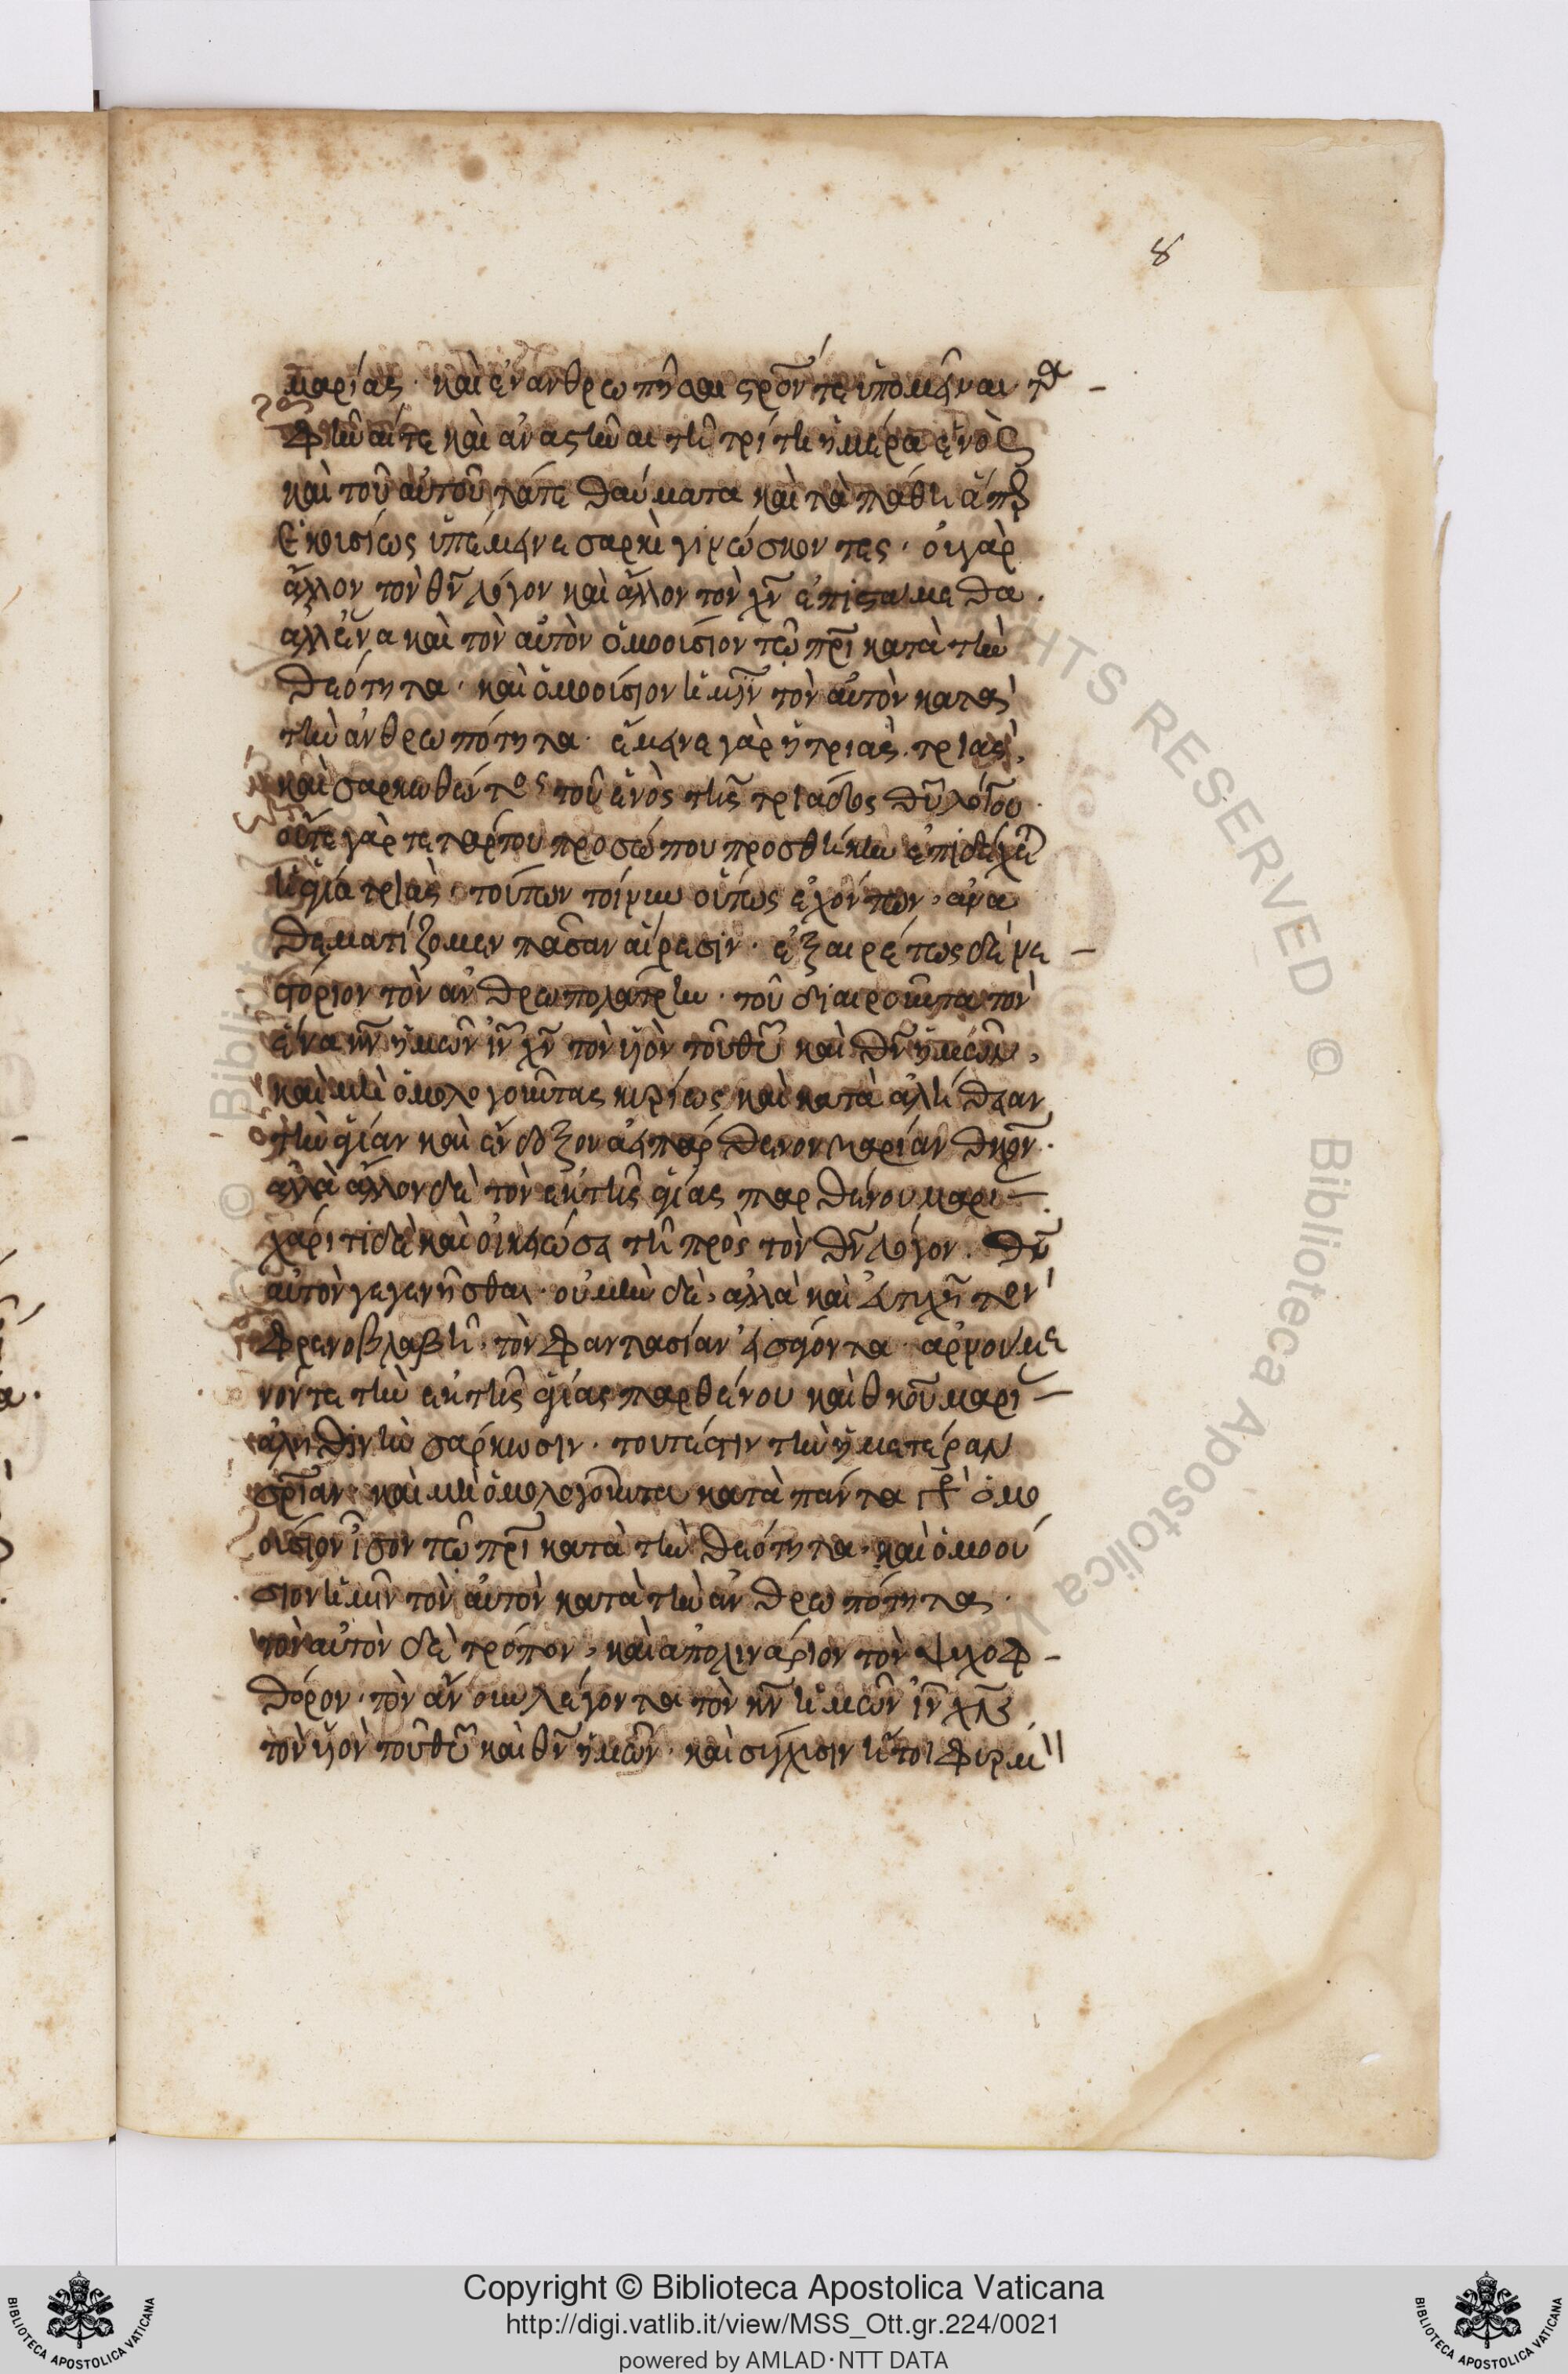 8
μαρίας· καὶ ἐνανθρωπῆσαι σρόν τε ὑπομεῖναι τα
φῆναί τε καὶ ἀναστῆναι τῆ τρίτη ἡμέρα ἑνὸς
καὶ τοῦ αὐτοῦ τάτε θαύματα καὶ τὰ πάθη ἅπερ
ἑκουσίως ὑπέμεινε σαρκὶ γινώσκοντες· οὐ γὰρ
ἄλλον τὸν θν λόγον καὶ ἄλλον τὸν χν ἐπιστάμεθα·
αλλ ἕνα καὶ τὸν αὐτὸν ὁμοούσιον τῶ πρι κατὰ τὴν
θεότητα· καὶ ὁμοούσιον ἡμῖν τὸν αὐτὸν κατὰ
τὴν ἀνθρωπότητα· ἔμεινε γὰρ ἡ τριὰς τριὰς,
καὶ σαρκωθέντος τοῦ ἑνὸς τῆς τριάδος θυ λόγου·
οὔτε γὰρ τετάρτου προσώπου προσθήκην ἐπιδέχεται
ἡ ἁγία τριὰς· τούτων τοίνυν οὕτως ἐχόντων, ἀνα
θεματίζομεν πᾶσαν αἵρεσιν· ἐξαιρέτως δὲ νε
στόριον τὸν ἀνθρωπολάτρην· τοῦ διαιροῦντα τὸν
ἕνα κν ἡμῶν ιν χν τὸν υἱὸν τοῦ θυ καὶ θν ἡμῶν,
καὶ μὴ ὁμολογοῦντας κυρίως καὶ κατὰ ἀλήθειαν
τὴν ἁγίαν καὶ ἔνδοξον ἀειπάρθενον μαρίαν θκον·
ἀλλὰ ἄλλον δὲ τὸν ἐκ τῆς ἁγίας παρθένου μαρι
χάριτι δὲ καὶ οἰκειώσει τῆ πρὸς τὸν θν λόγον· θν
αὐτὸν γεγενῆσθαι· οὐ μὴν δὲ, ἀλλὰ καὶ εὐτυχῆ τὸν
φρενοβλαβῆ· τὸν φαντασίαν εἰσάγοντα· ἀρνούμε
νόν τε τὴν ἐκ τῆς ἁγίας παρθένου καὶ θκου μαρι
ἀληθινὴν σάρκωσιν· τουτέστιν τὴν ἡμετέραν
σριαν· καὶ μὴ ὁμολογοῦντα κατὰ πάντα ὁμο
ούσιον ἴσον τῶ πρι κατὰ τὴν θεότητα, καὶ ὁμοού
σιον ἡμῖν τὸν αὐτὸν κατὰ τὴν ἀνθρωπότητα·
τὸν αὐτὸν δὲ τρόπον, καὶ απολινάριον τὸν ψυχοφ
θόρον· τὸν ἄνουν λέγοντα τὸν κν ἡμῶν ιν χν
τὸν υἱὸν τοῦ θυ καὶ θν ἡμῶν· καὶ σύγχυσιν ἤτοι φυρμ
Copyright © Biblioteca Apostolica Vaticana
http://digi.vatlib.it/view/MSS_Ott.gr.224/0021
powered by AMLAD·NTT DATA